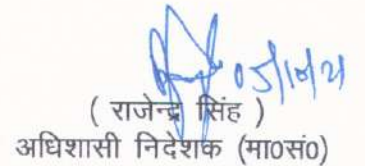 05/10/21
( राजेन्द्र सिंह )
अधिशासी निदेशक (मा0सं0)